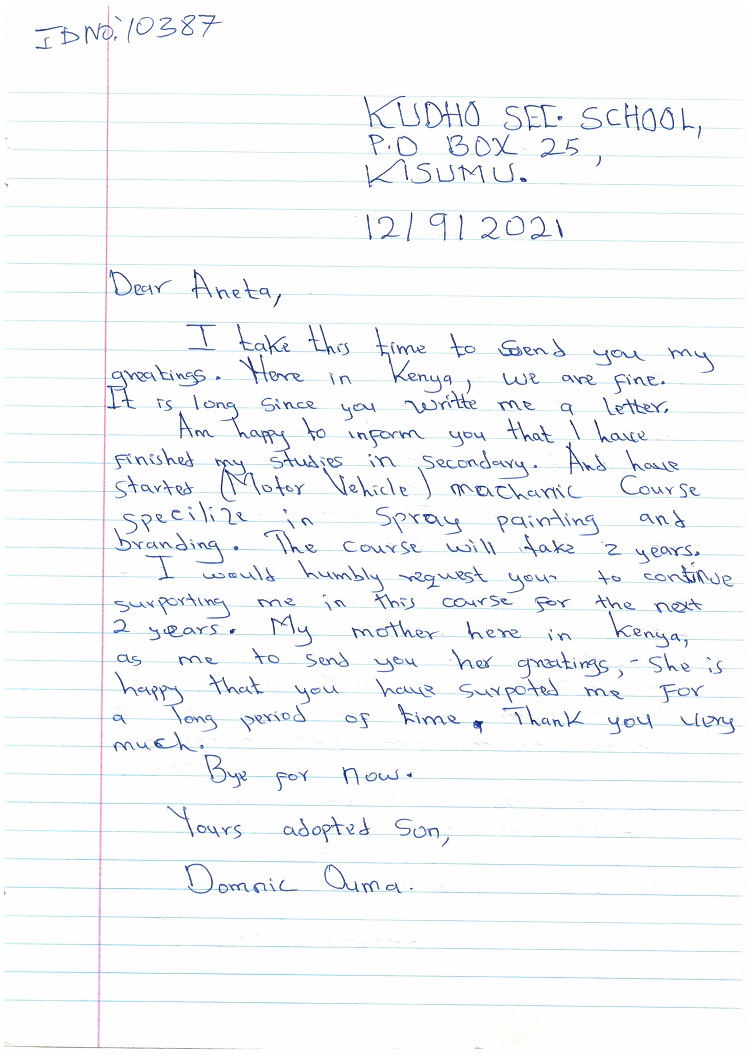 ID No: 10387
KUDHO SEC. SCHOOL,
P.O BOX 25,
KISUMU.
12/9/2021
Dear Aneta,
I take this time to send you my
greatings. Here in Kenya, we are fine.
It is long since you writte me a letter.
Am happy to inform you that I have
finished my studies in secondary. And have
started (Motor Vehicle) machanic Course
specilize in Spray painting and
branding. The course will take 2 years.
I would humbly request your to continue
surporting me in this course for the next
2 years. My mother here in Kenya,
as me to send you her greatings, - She is
happy that you have surpoted me For
a long period of time. Thank you very
much.
Bye for now.
Yours adopted Son,
Domnic Ouma.